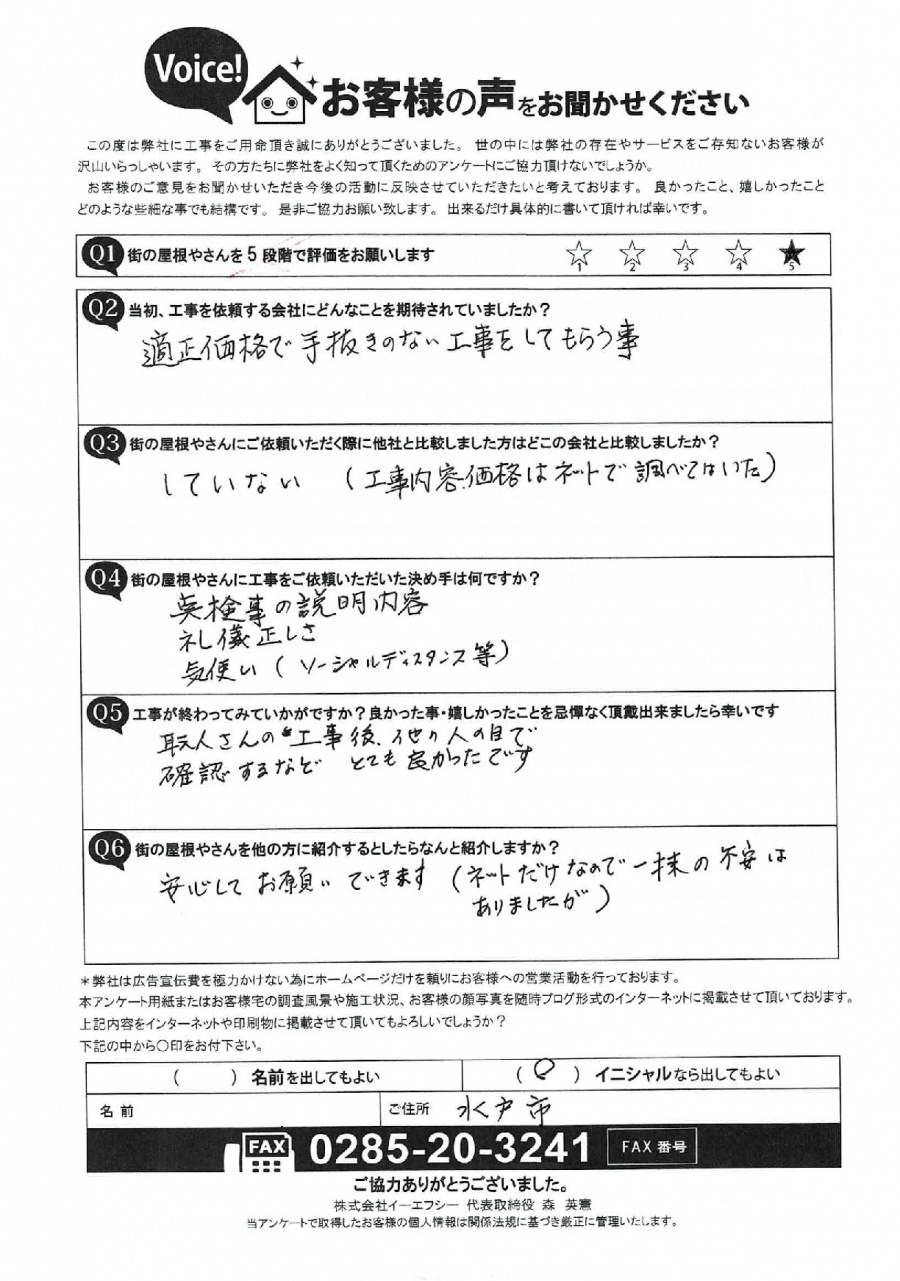 Voice!
お客様の声をお聞かせください
この度は弊社に工事をご用命頂き誠にありがとうございました。 世の中には弊社の存在やサービスをご存知ないお客様が
沢山いらっしゃいます。 その方たちに弊社をよく知って頂くためのアンケートにご協力頂けないでしょうか。
お客様のご意見をお聞かせいただき今後の活動に反映させていただきたいと考えております。 良かったこと、嬉しかったこと
どのような些細な事でも結構です。 是非ご協力お願い致します。 出来るだけ具体的に書いて頂ければ幸いです。
Q1 街の屋根やさんを5段階で評価をお願いします ☆1 ☆2 ☆3 ☆4 ★5
Q2 当初、工事を依頼する会社にどんなことを期待されていましたか？
適正価格で手抜きのない工事をしてもらう事
Q3 街の屋根やさんにご依頼いただく際に他社と比較しました方はどこの会社と比較しましたか？
していない (工事内容、価格はネットで調べてはいた)
Q4 街の屋根やさんに工事をご依頼いただいた決め手は何ですか？
点検事の説明内容
礼儀正しさ
気使い (ソーシャルディスタンス等)
Q5 工事が終わってみていかがですか？良かった事・嬉しかったことを忌憚なく頂戴出来ましたら幸いです
職人さんの工事後、他の人の目で
確認するなど とても良かったです
Q6 街の屋根やさんを他の方に紹介するとしたらなんと紹介しますか？
安心してお願いできます (ネットだけなので一抹の不安は
ありましたが)
＊弊社は広告宣伝費を極力かけない為にホームページだけを頼りにお客様への営業活動を行っております。
本アンケート用紙またはお客様宅の調査風景や施工状況、お客様の顔写真を随時ブログ形式のインターネットに掲載させて頂いております。
上記内容をインターネットや印刷物に掲載させて頂いてもよろしいでしょうか？
下記の中から〇印をお付下さい。
( ) 名前を出してもよい (○) イニシャルなら出してもよい
名前 ご住所 水戸市
FAX 0285-20-3241 FAX 番号
ご協力ありがとうございました。
株式会社イーエフシー 代表取締役 森 英憲
当アンケートで取得したお客様の個人情報は関係法規に基づき厳正に管理いたします。